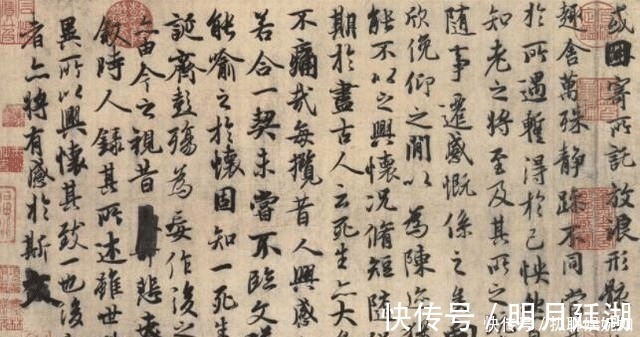 或因寄所託放浪形
趣舍萬殊靜躁不同當
於所遇暫得於己怏
知老之將至及其所之
隨事遷感慨係之矣
欣俛仰之閒以為陳迹
能不以之興懷況脩短隨
期於盡古人云死生亦大
不痛哉每攬昔人興感
若合一契未嘗不臨文
能喻之於懷固知一死生
誕齊彭殤為妄作後之
亦由今之視昔悲夫
敘時人錄其所述雖世
異所以興懷其致一也後
者亦將有感於斯文
快传号/明月廷湖